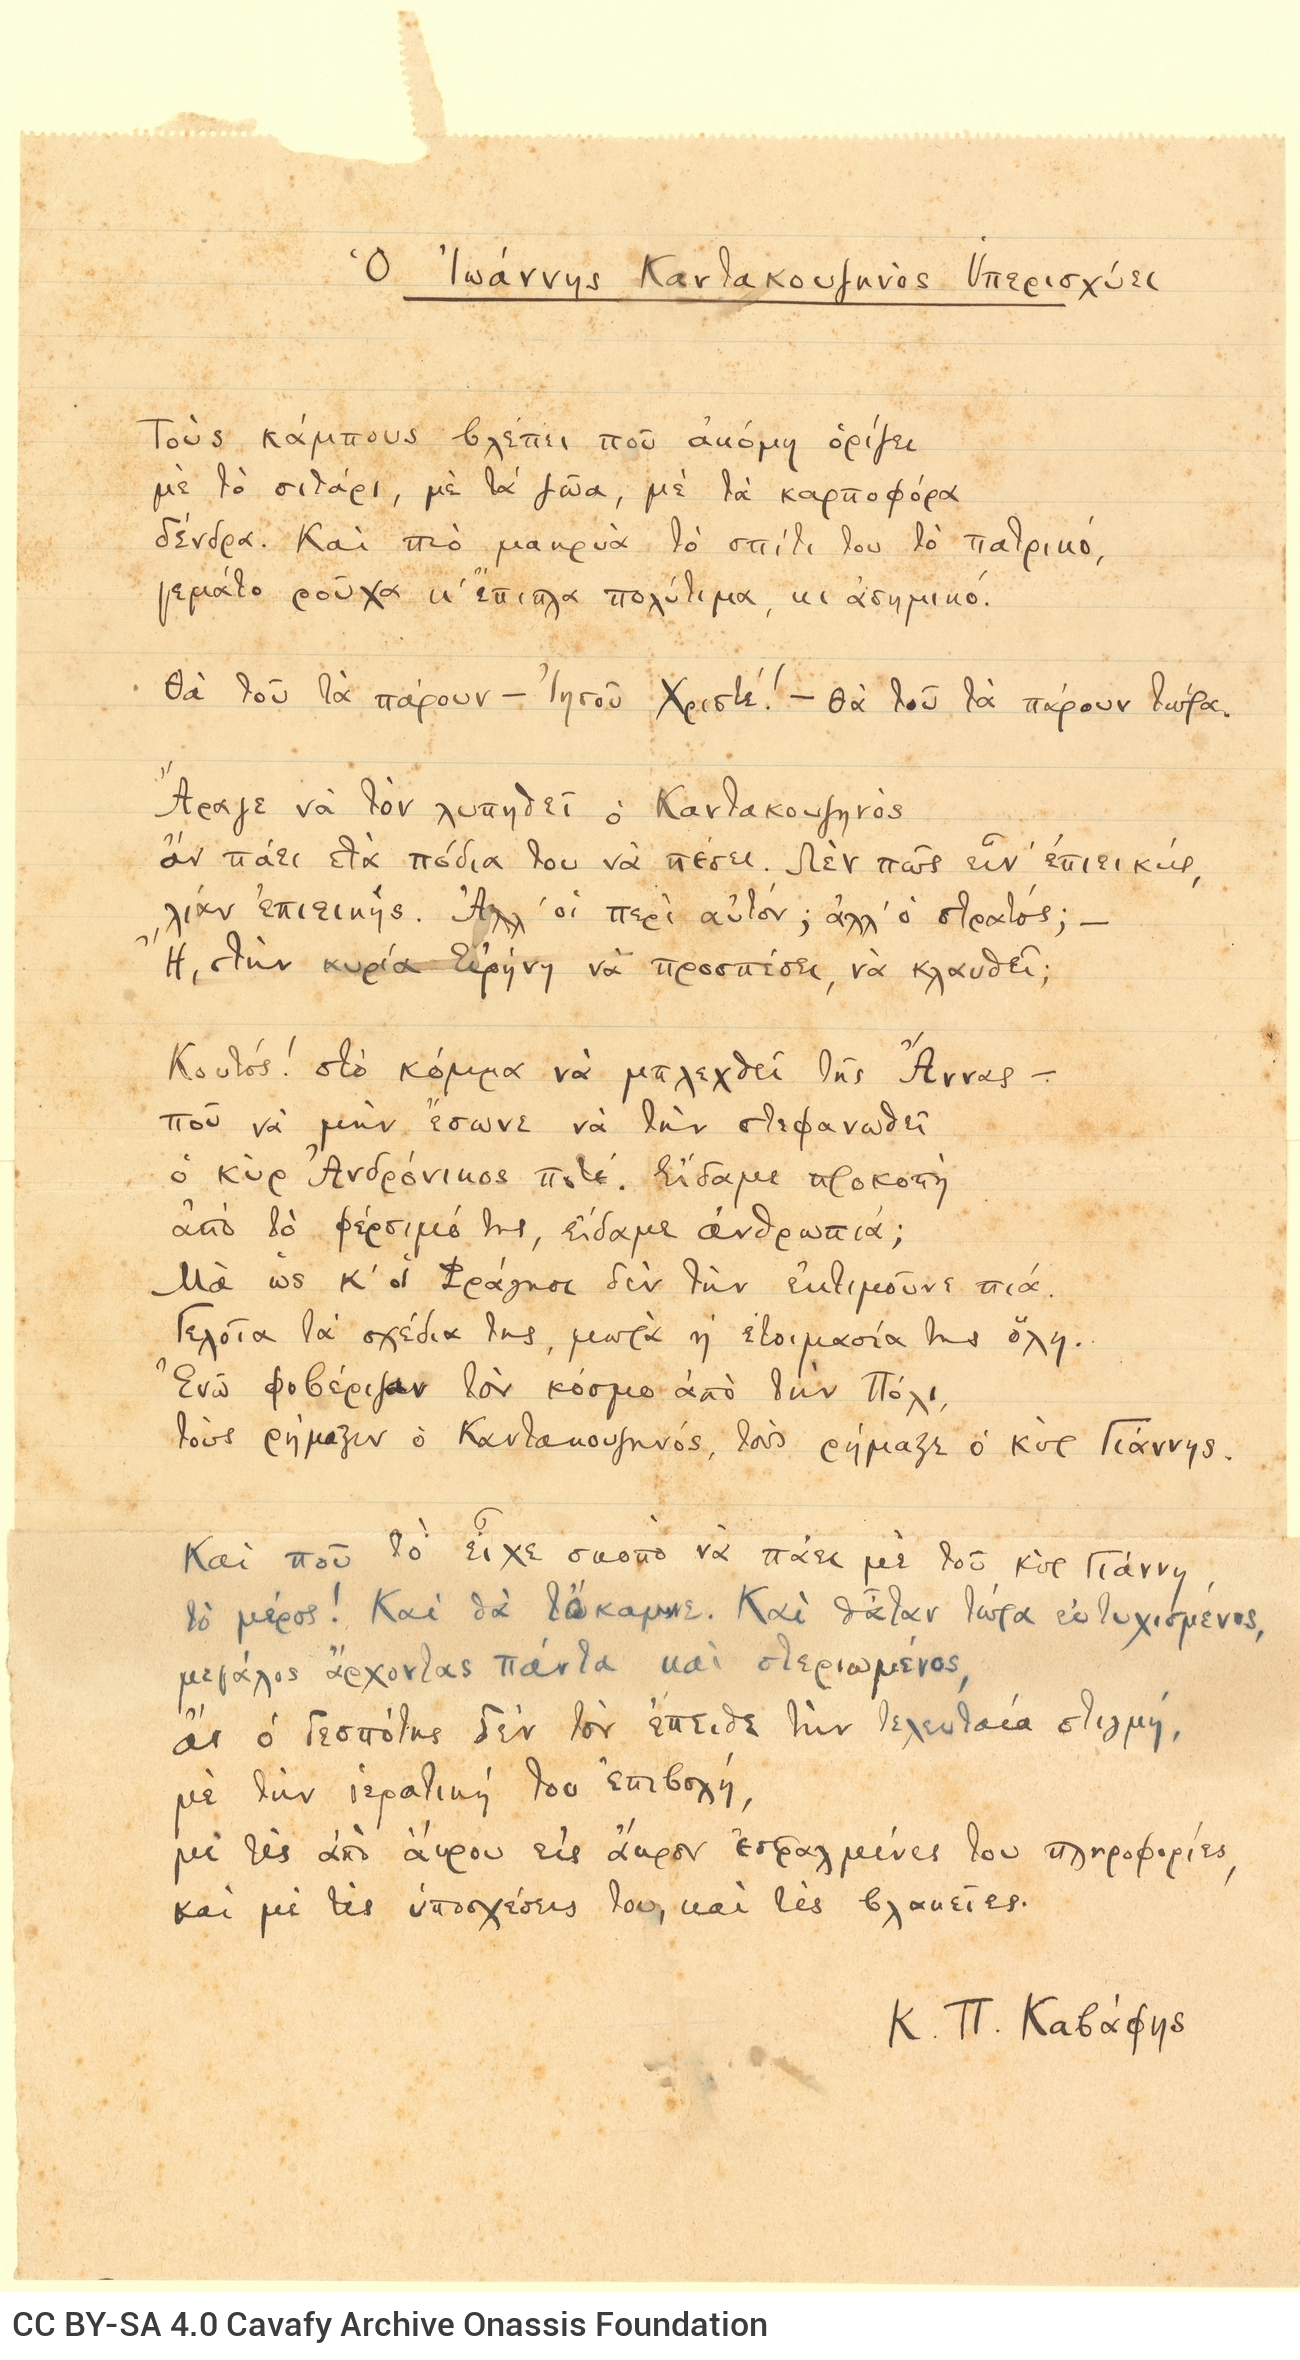 Ὁ Ἰωάννης Καντακουζηνὸς Ὑπερισχύει
Τοὺς κάμπους βλέπει ποῦ ἀκόμη ὁρίζει
μὲ τὸ σιτάρι, μὲ τὰ ζῶα, μὲ τὰ καρποφόρα
δένδρα. Καὶ πιὸ μακρυὰ τὸ σπίτι του τὸ πατρικό,
γεμάτο ροῦχα κ' ἔπιπλα πολύτιμα, κι ἀσημικό.
Θὰ τοῦ τὰ πάρουν — Ἰησοῦ Χριστέ! — θὰ τοῦ τὰ πάρουν τώρα.
Ἄραγε νὰ τὸν λυπηθεῖ ὁ Καντακουζηνὸς
ἂν πάει στὰ πόδια του νὰ πέσει. Λὲν πῶς εἶν' ἐπιεικής,
λίαν ἐπιεικής. Ἀλλ' οἱ περὶ αὐτόν; ἀλλ' ὁ στρατός; —
Ἤ, στὴν κυρία Εἰρήνη νὰ προσπέσει, νὰ κλαυθεῖ;
Κουτός! στὸ κόμμα νὰ μπλεχθεῖ τῆς Ἄννας —
ποῦ νὰ μὴν ἔσωνε νὰ τὴν στεφανωθεῖ
ὁ κὺρ Ἀνδρόνικος ποτέ. Εἴδαμε προκοπὴ
ἀπὸ τὸ φέρσιμό της, εἴδαμε ἀνθρωπιά;
Μὰ ὡς κ' οἱ Φράγκοι δὲν τὴν ἐκτιμοῦνε πιά.
Γελοῖα τὰ σχέδιά της, μωρὰ ἡ ἑτοιμασία της ὅλη.
Ἐνῶ φοβέριζαν τὸν κόσμο ἀπὸ τὴν Πόλι,
τοὺς ρήμαξεν ὁ Καντακουζηνός, τοὺς ρήμαξε ὁ κὺρ Γιάννης.
Καὶ ποῦ τὸ εἶχε σκοπὸ νὰ πάει μὲ τοῦ κὺρ Γιάννη
τὸ μέρος! Καὶ θὰ τὄκαμνε. Καὶ θἆταν τώρα εὐτυχισμένος,
μεγάλος ἄρχοντας πάντα καὶ στεριωμένος,
ἂν ὁ δεσπότης δὲν τὸν ἔπειθε τὴν τελευταία στιγμή,
μὲ τὴν ἱερατική του ἐπιβολή,
μὲ τὲς ἀπὸ ἄκρου εἰς ἄκρον ἐσφαλμένες του πληροφορίες,
καὶ μὲ τὲς ὑποσχέσεις του, καὶ τὲς βλακεῖες.
Κ. Π. Καβάφης
CC BY-SA 4.0 Cavafy Archive Onassis Foundation